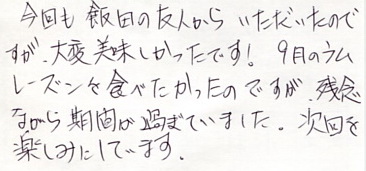 今回も飯田の友人からいただいたので
すが、大変美味しかったです！9月のラム
レーズンを食べたかったのですが、残念
ながら期間が過ぎていました。次回を
楽しみにしています。